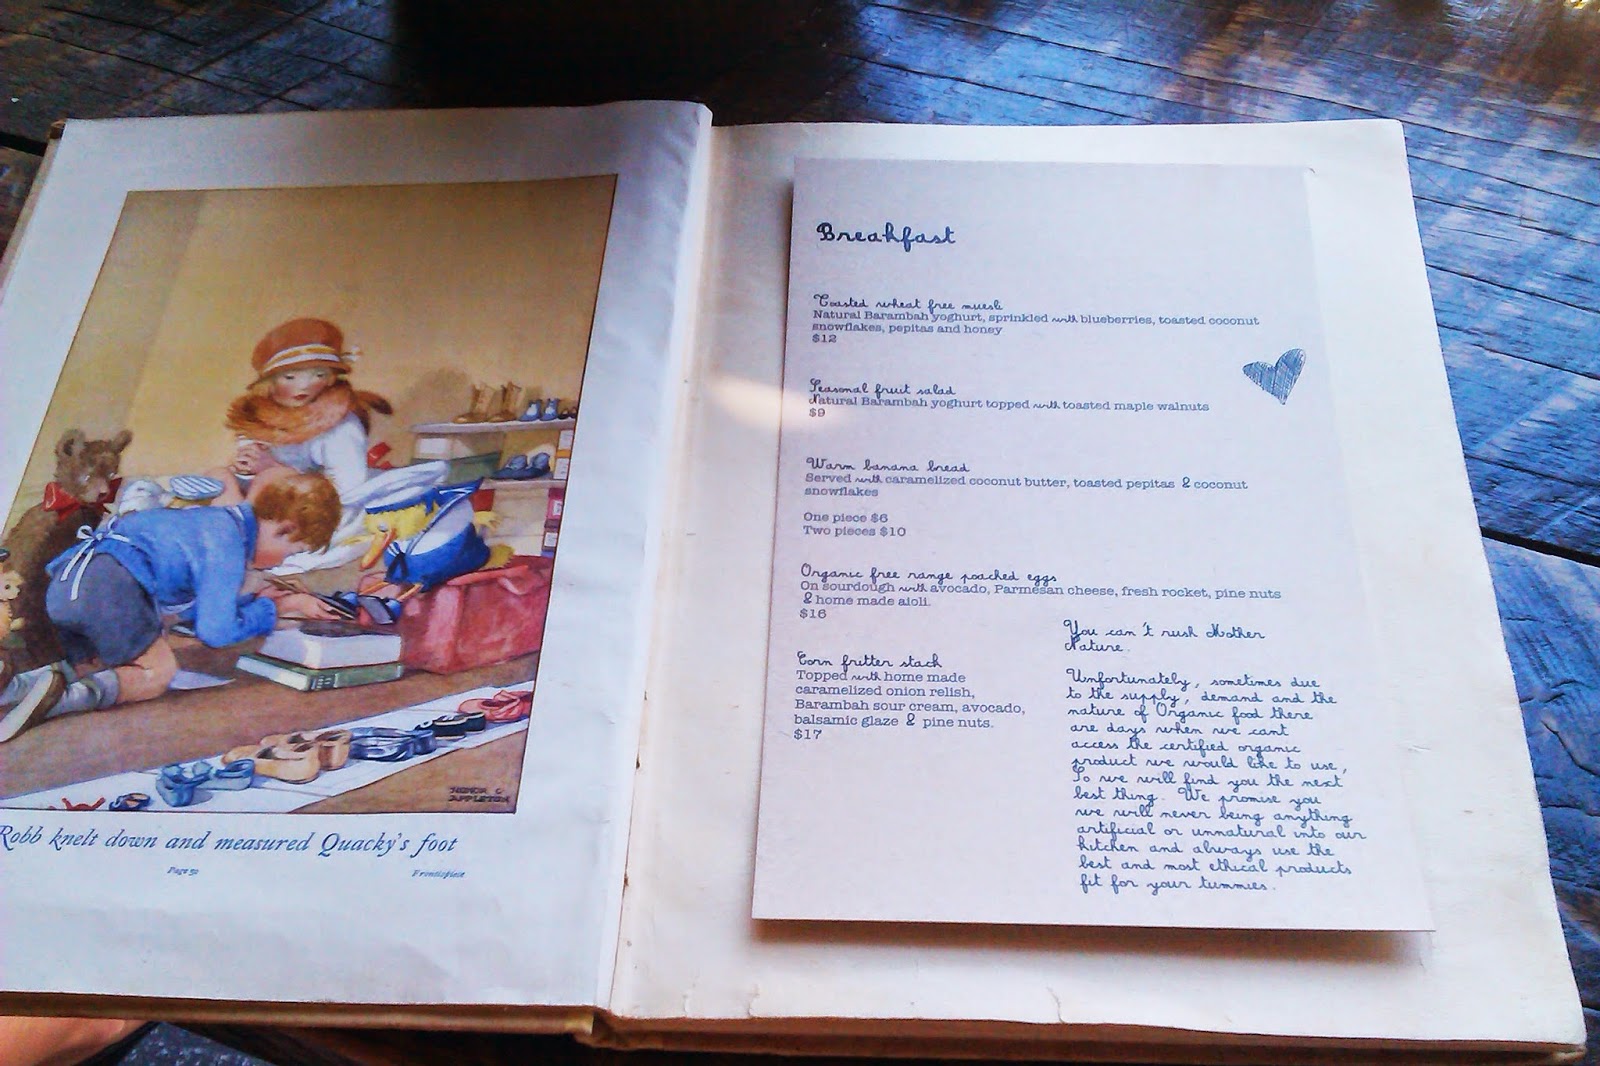 NONOR C
APPLETON
Robb knelt down and measured Quacky's foot
Page 50
Frontispiece
Breakfast
Toasted wheat free muesli
Natural Barambah yoghurt, sprinkled with blueberries, toasted coconut
snowflakes, pepitas and honey
$12
Seasonal fruit salad
Natural Barambah yoghurt topped with toasted maple walnuts
$9
Warm banana bread
Served with caramelized coconut butter, toasted pepitas & coconut
snowflakes
One piece $6
Two pieces $10
Organic free range poached eggs
On sourdough with avocado, Parmesan cheese, fresh rocket, pine nuts
& home made aioli.
$16
Corn fritter stack
Topped with home made
caramelized onion relish,
Barambah sour cream, avocado,
balsamic glaze & pine nuts.
$17
You can't rush Mother
Nature.
Unfortunately, sometimes due
to the supply, demand and the
nature of Organic food there
are days when we cant
access the certified organic
product we would like to use,
So we will find you the next
best thing. We promise you
we will never being anything
artificial or unnatural into our
kitchen and always use the
best and most ethical products
fit for your tummies.